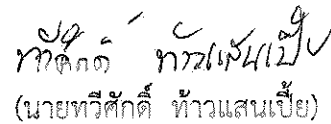 ทวีศักดิ์ ท้าวแสนเปี้ย
(นายทวีศักดิ์ ท้าวแสนเปี้ย)